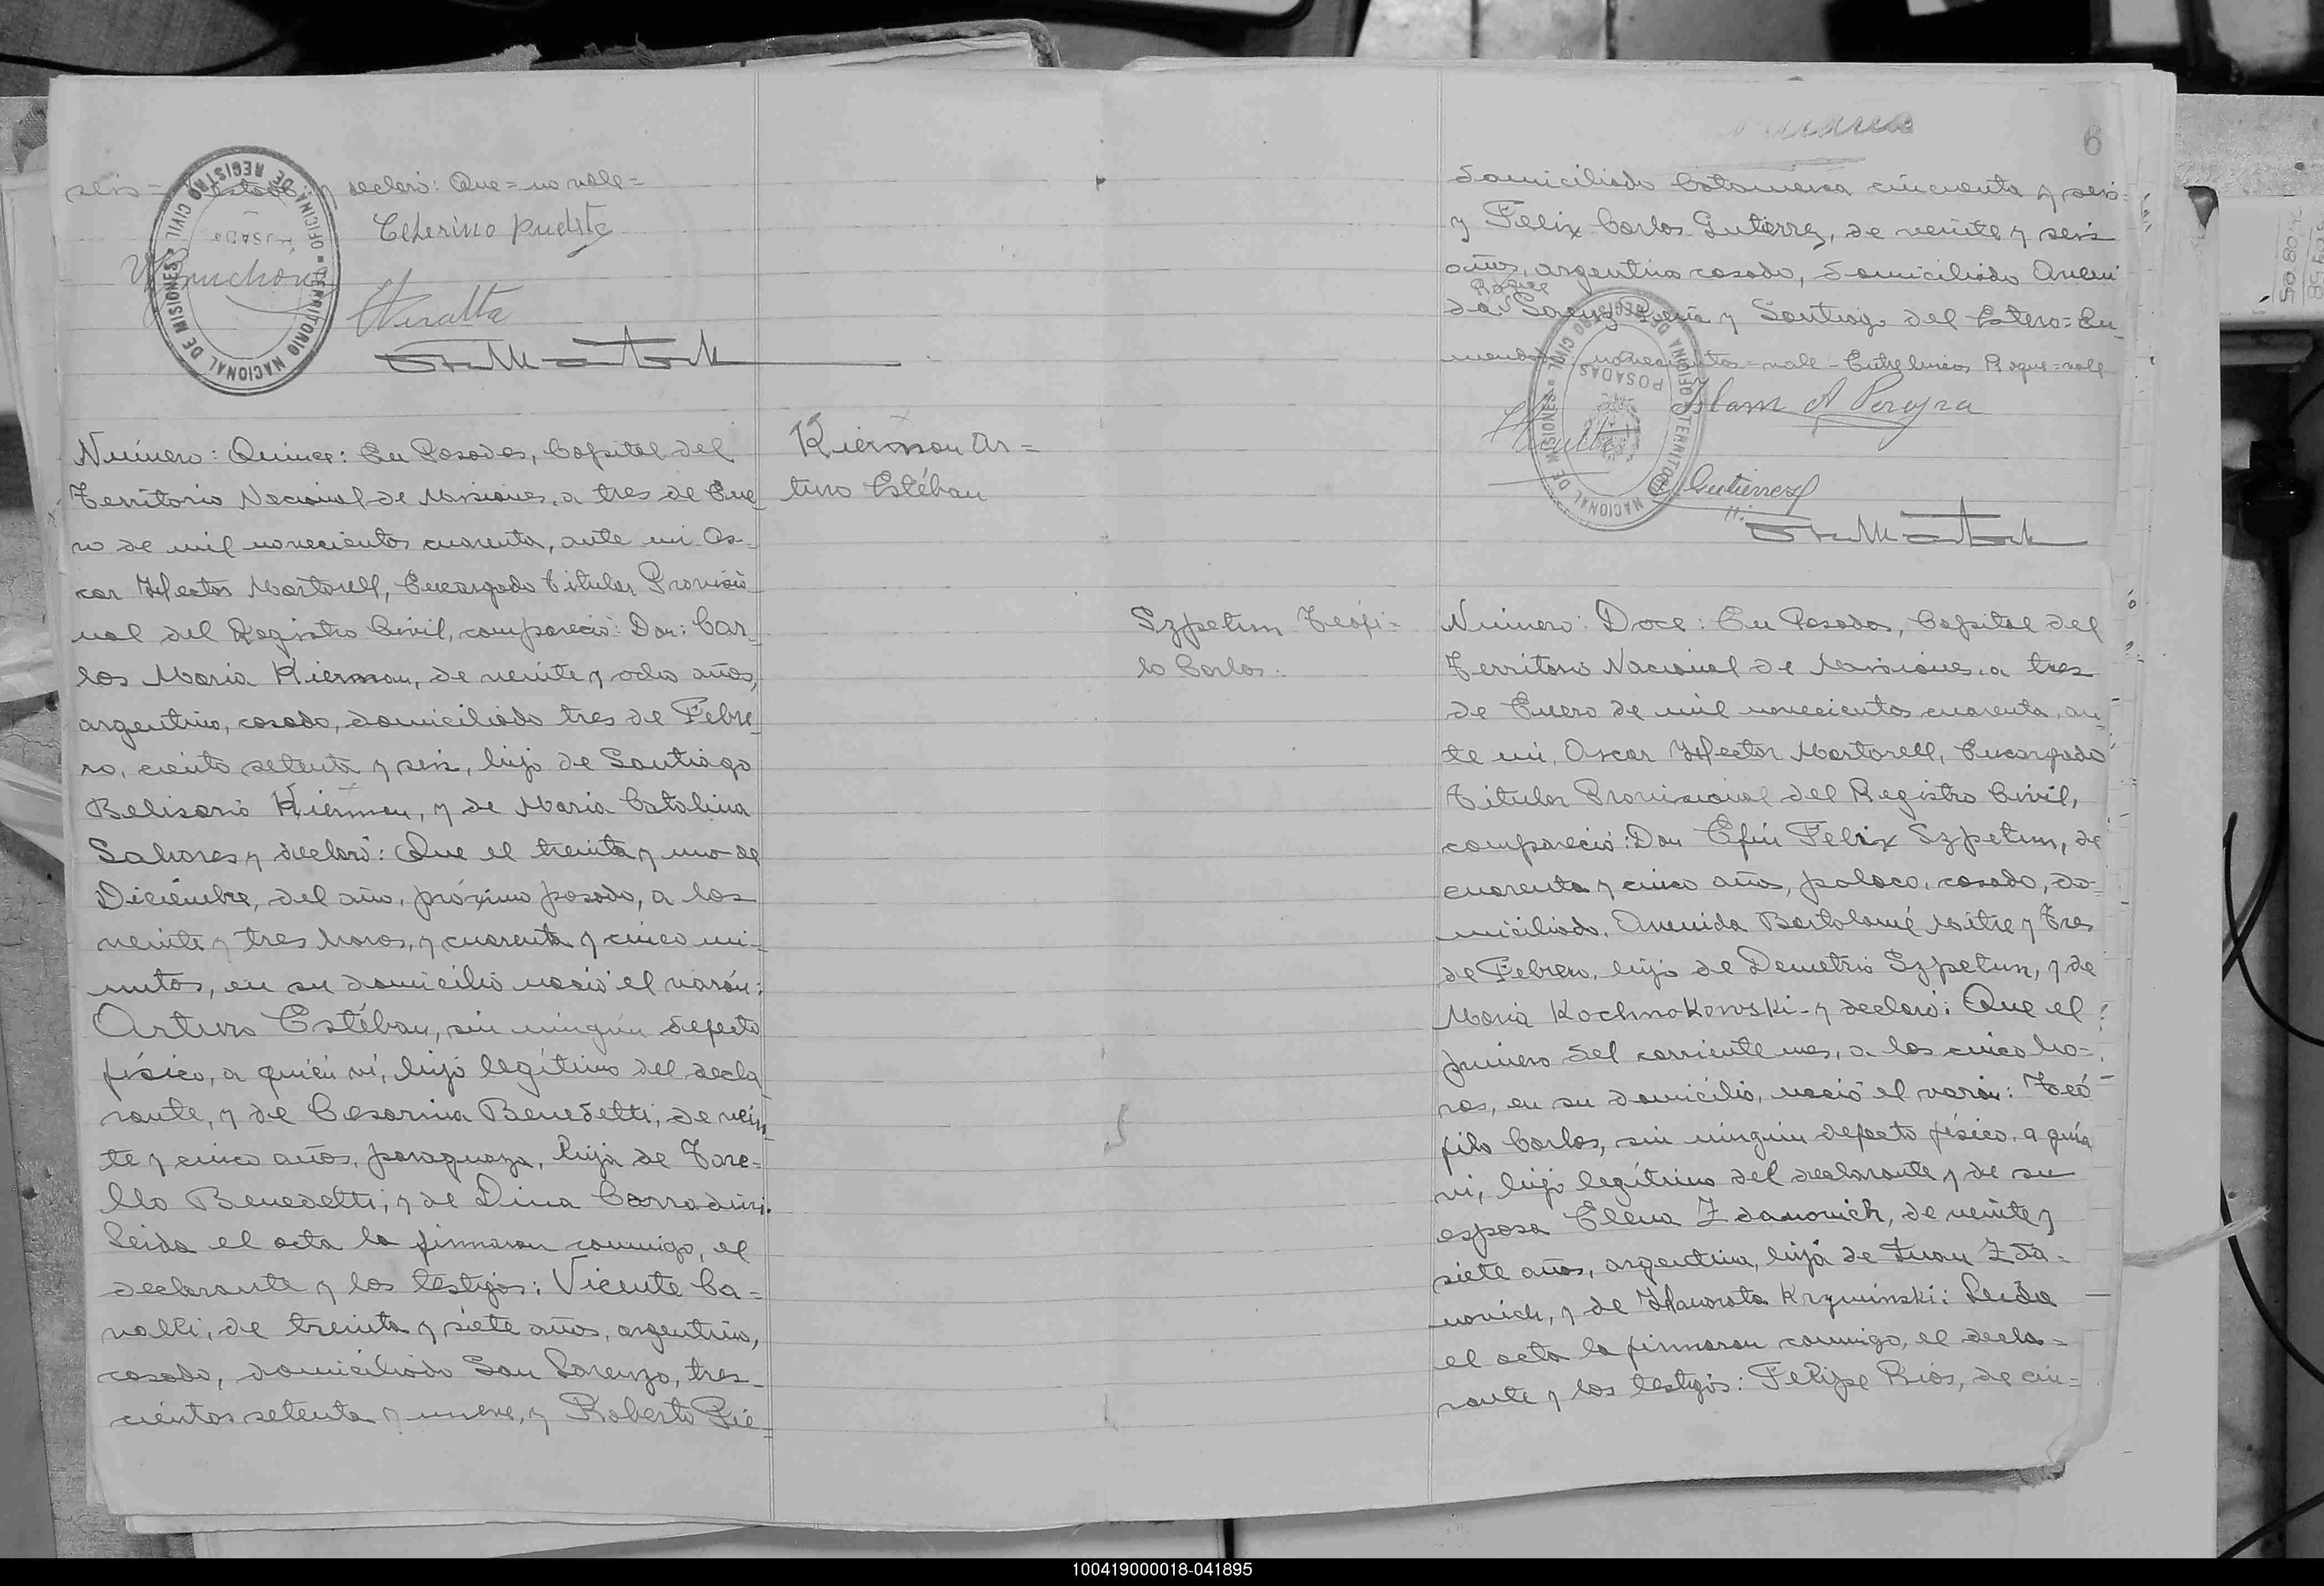 seis = testado: y declaró: Que = no vale =
Ceferino
OFICINA DE REGISTRO CIVIL = TERRITORIO NACIONAL DE MISIONES =
POSADAS
Peralta
Número: Quince: En Posadas, Capital del
Territorio Nacional de Misiones, a tres de Ene
ro de mil novecientos cuarenta, ante mi Os-
car Hector Martorell, Encargado Titular Provisio
nal del Registro Civil, compareció: Don: Car-
los Maria Kiernan, de veinte y ocho años,
argentino, casado, domiciliado tres de Febre
ro, ciento setenta y seis, hijo de Santiago
Belisario Kiernan, y de Maria Catalina
Sahores y declaró: Que el treinta y uno de
Diciembre, del año, próximo pasado, a las
veinte y tres horas, y cuarenta y cinco mi-
nutos, en su domicilio nació el varón:
Arturo Estéban, sin ningún defecto
físico, a quién ví, hijo legítimo del decla
rante, y de Cesarina Benedetti, de vein
te y cinco años, paraguaya, hija de Tore-
llo Benedetti; y de Dina Corradini.
Leida el acta la firmaron conmigo, el
declarante y los testigos: Vicente Ca-
valli, de treinta y siete años, argentino,
casado, domiciliado San Lorenzo, tres-
cientos setenta y nueve, y Roberto Pie
Kiernan Ar=
turo Estéban
6
domiciliado Catamarca cincuenta y seis=
y Felix Carlos Gutierrez, de veinte y seis
años, argentino casado, domiciliado Aveni
Roque
da Saenz Peña y Santiago del Estero = En
mendado: novecientos = vale - Entre lineas Roque = vale
OFICINA DE REGISTRO CIVIL = TERRITORIO NACIONAL DE MISIONES =
POSADAS
A Pereyra
Peralta
C. Gutierrez
Szpetun Teófi=
lo Carlos.
Número: Doce: En Posadas, Capital del
Territorio Nacional de Misiones, a tres
de Enero de mil novecientos cuarenta, an
te mi, Oscar Hector Martorell, Encargado
Titular Provisional del Registro Civil,
compareció: Don Efin Felix Szpetun, de
cuarenta y cinco años, polaco, casado, do=
miciliado, Avenida Bartolomé Mitre y Tres
de Febrero, hijo de Demetrio Szpetun, y de
Maria Kochnokowski - y declaró: Que el
primero del corriente mes, a las cinco ho-
ras, en su domicilio, nació el varón: Teó
filo Carlos, sin ningún defecto físico, a quién
ví, hijo legítimo del declarante y de su
esposa Elena Zdanovich, de veinte y
siete años, argentina, hija de Juan Zda-
novich, y de Krzyminski: Leida
el acta la firmaron conmigo, el decla=
rante y los testigos: Felipe Rios, de cin=
100419000018-041895